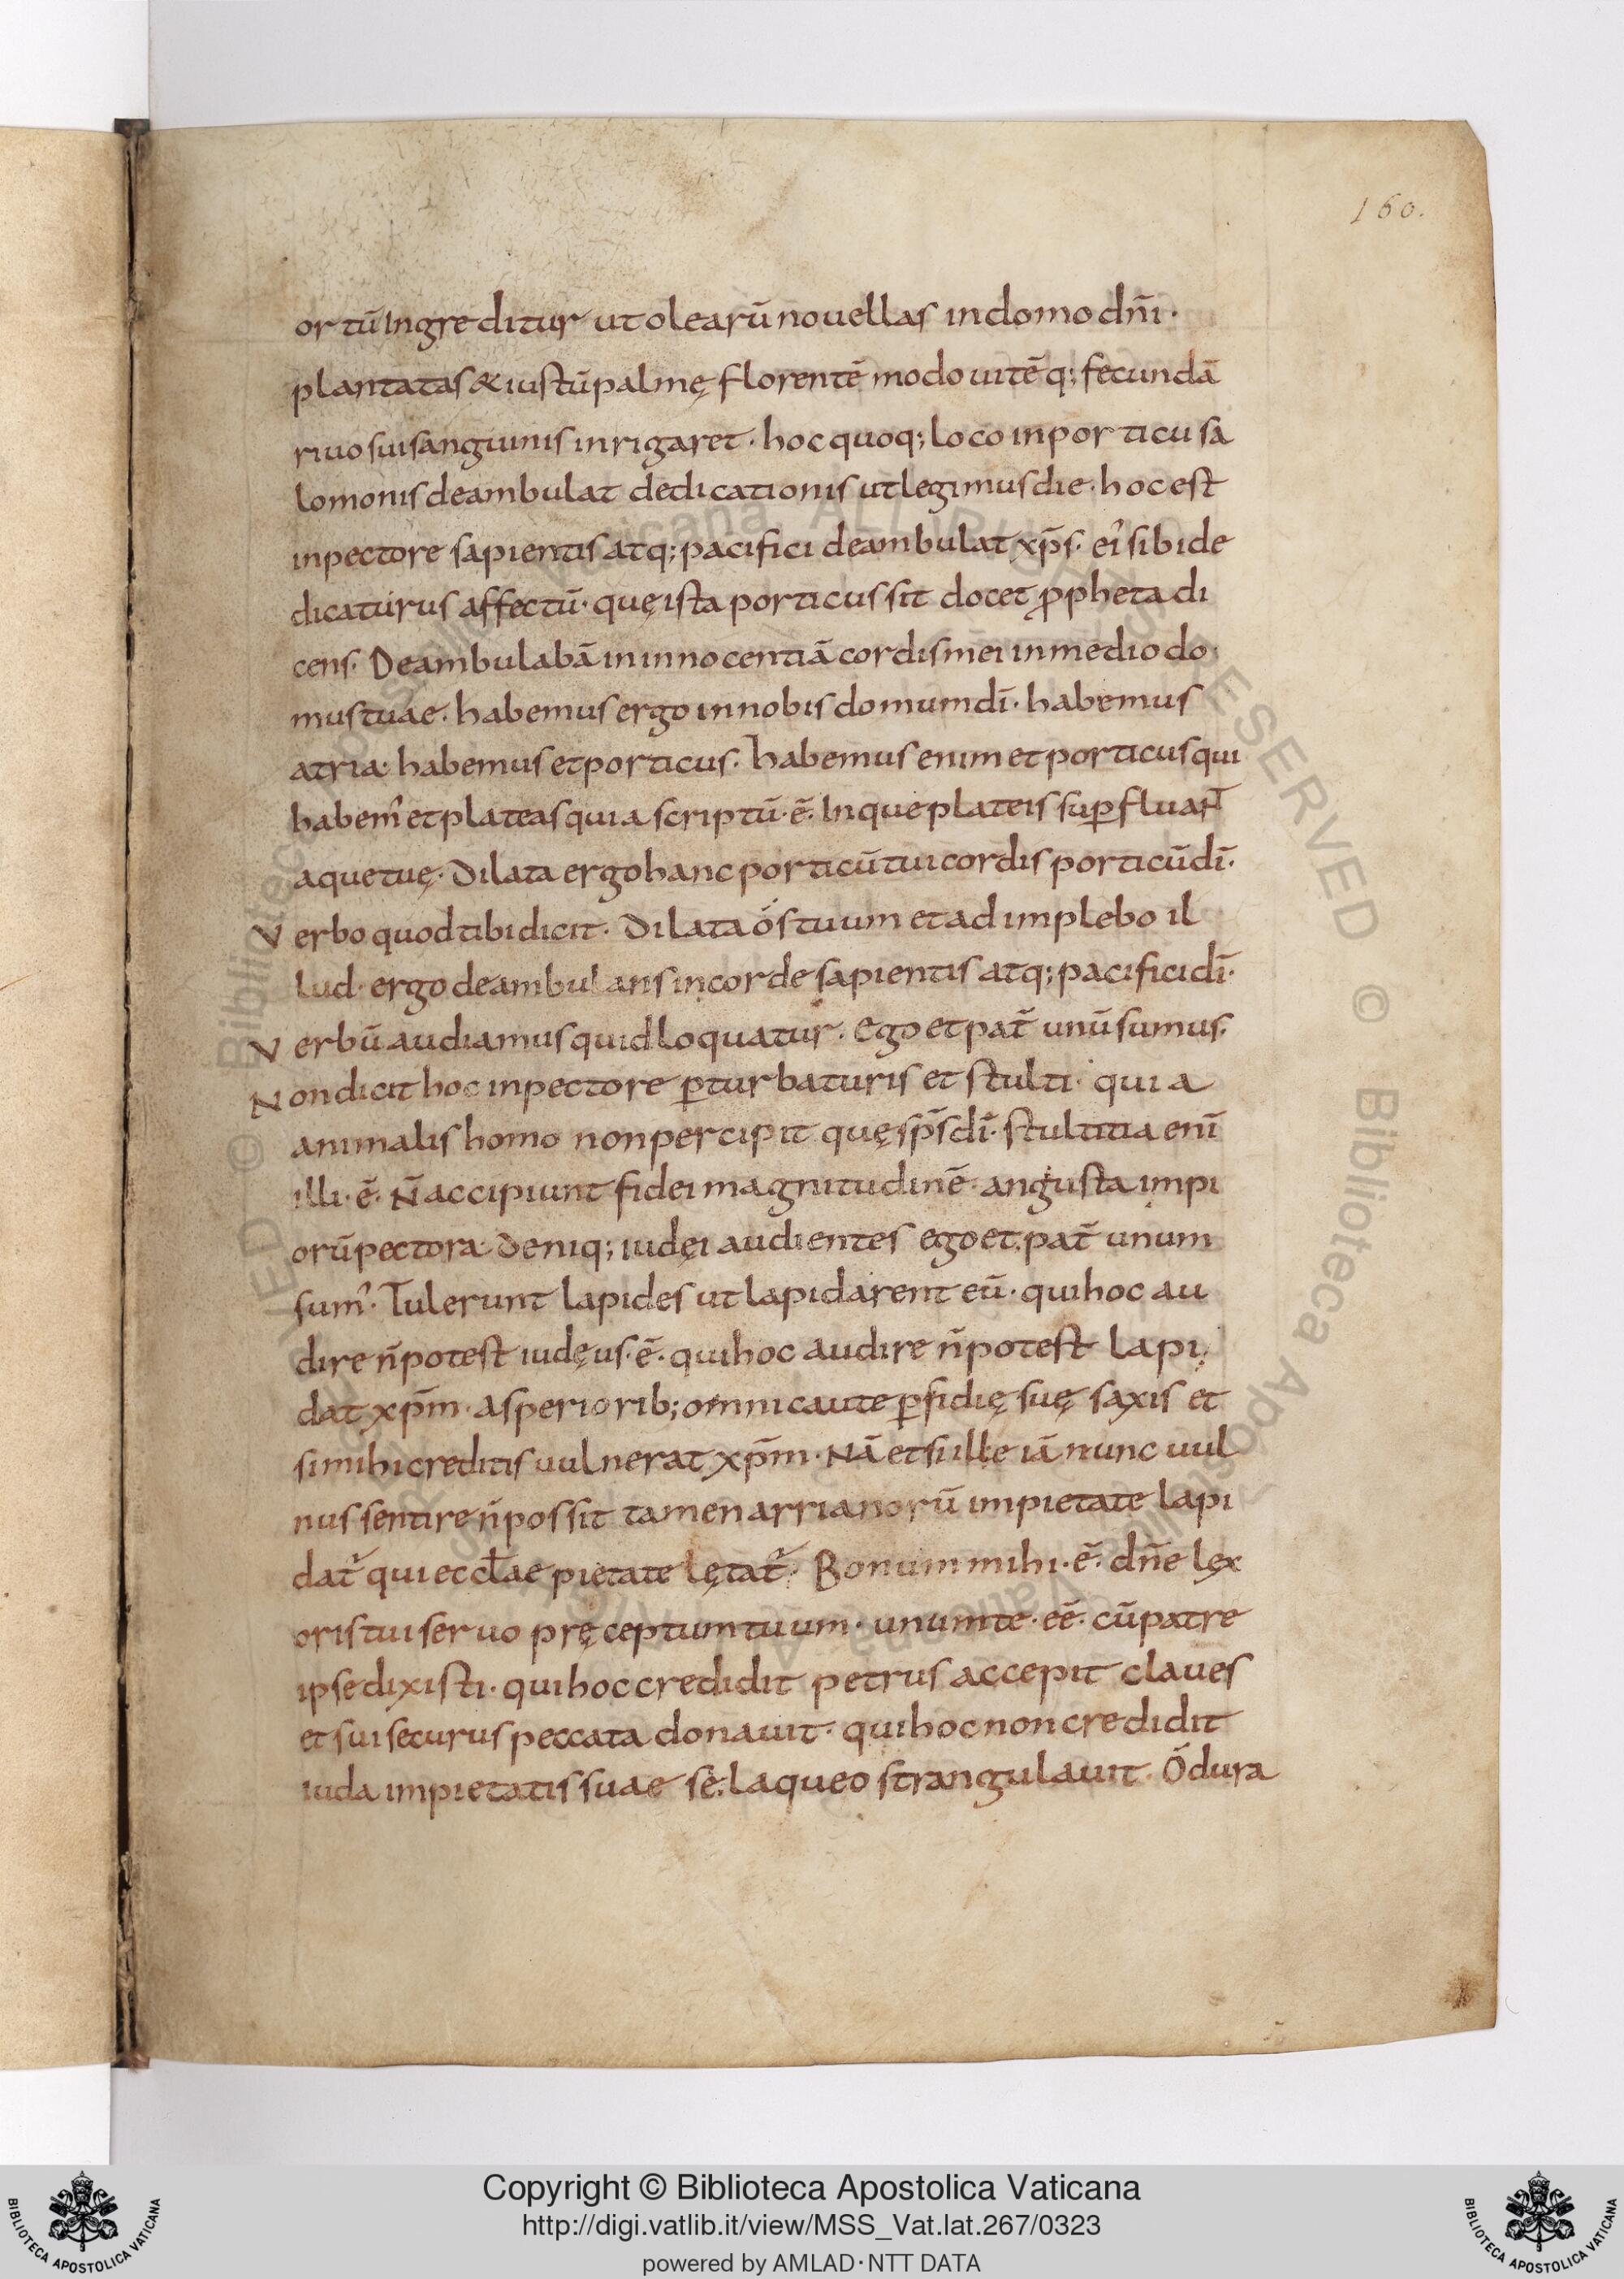 160.
ortū ingreditur ut olearū nouellas in domo dn̄i ·
plantatas & iustū palmę florentē modo uitēq; fecundā
riuo sui sangiunis inrigaret · hoc quoq; loco in porticu sa
lomonis deambulat dedicationis ut legimus die · hoc est
in pectore sapientis atq; pacifici deambulat xp̄s · ei' sibi de
dicaturus affectū · quę ista porticus sit docet ꝓpheta di
cens · Deambulabā in innocentiā cordis mei in medio do
mus tuae · habemus ergo in nobis domum dī · habemus
atria · habemus et porticus · habemus enim et porticus qui
habem' et plateas quia scriptū · ē · Inque plateis suꝑfluant
aque tuę · Dilata ergo hanc porticū tui cordis porticū dī ·
Verbo quod tibi dicit · Dilata ós tuum et adimplebo il
lud · ergo deambulans in corde sapientis atq; pacifici dī ·
Verbū audiamus quid loquatur · Ego et pat̄ unū sumus ·
Non dicit hoc in pectore ꝑturbaturis et stulti · quia
animalis homo non percipit quę sp̄s dī · stultitia enī
illi · ē · N̄ accipiunt fidei magnitudinē · angusta impi
orū pectora · Deniq; iudęi audientes ego et pat̄ unum
sum' · Tulerunt lapides ut lapidarent eū · qui hoc au
dire n̄ potest iudęus · ē · qui hoc audire n̄ potest lapi
dat xp̄m · asperiorib; omni caute ꝑfidię suę saxis et
si mihi creditis uulnerat xp̄m · Nā etsi ille iā nunc uul
nus sentire n̄ possit tamen arrianorū impietate lapi
dat' qui eccłae pietate lętat' · Bonum mihi · ē · dn̄e lex
oris tui seruo pręceptum tuum · unum te · eē · cū patre
ipse dixisti · qui hoc credidit petrus accepit claues
et sui securus peccata donauit · qui hoc non credidit
iuda impietatis suae se laqueo strangulauit · Ó dura
Copyright © Biblioteca Apostolica Vaticana
http://digi.vatlib.it/view/MSS_Vat.lat.267/0323
powered by AMLAD · NTT DATA
BIBLIOTECA APOSTOLICA VATICANA
BIBLIOTECA APOSTOLICA VATICANA